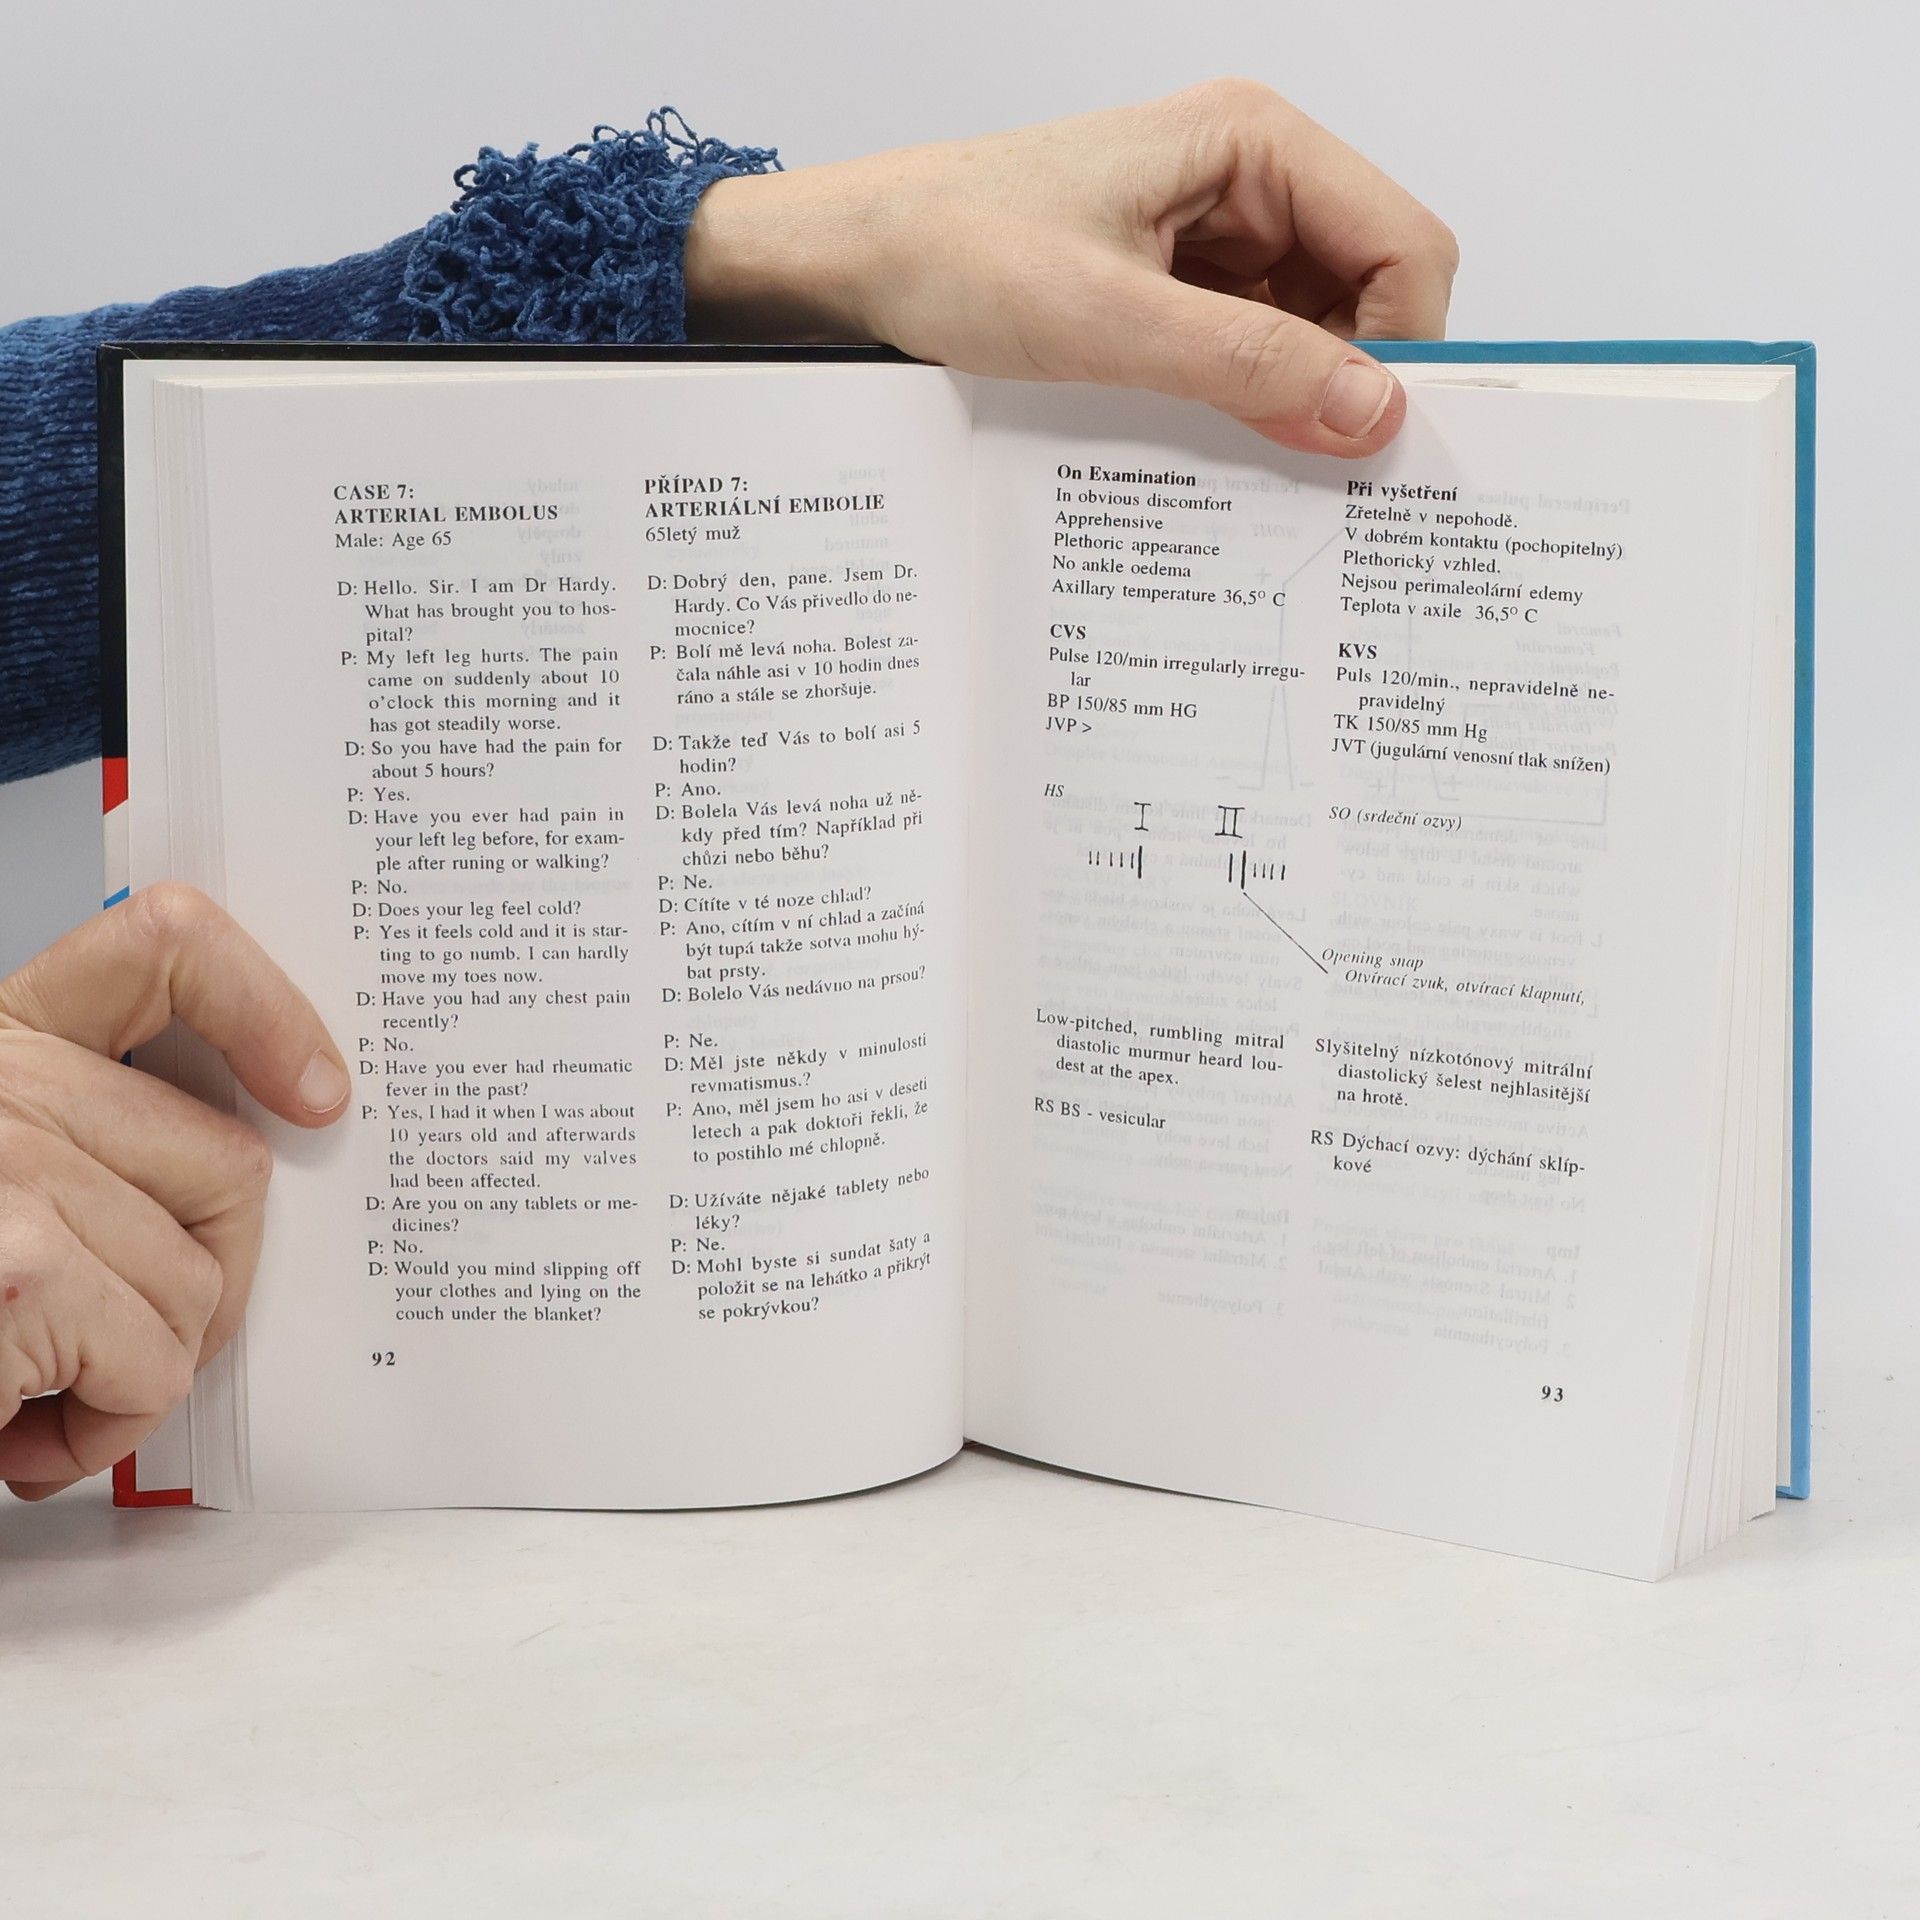 CASE 7:
ARTERIAL EMBOLUS
Male: Age 65
D: Hello. Sir. I am Dr Hardy.
What has brought you to hos-
pital?
P: My left leg hurts. The pain
came on suddenly about 10
o'clock this morning and it
has got steadily worse.
D: So you have had the pain for
about 5 hours?
P: Yes.
D: Have you ever had pain in
your left leg before, for exam-
ple after runing or walking?
P: No.
D: Does your leg feel cold?
P: Yes it feels cold and it is star-
ting to go numb. I can hardly
move my toes now.
D: Have you had any chest pain
recently?
P: No.
D: Have you ever had rheumatic
fever in the past?
P: Yes, I had it when I was about
10 years old and afterwards
the doctors said my valves
had been affected.
D: Are you on any tablets or me-
dicines?
P: No.
D: Would you mind slipping off
your clothes and lying on the
couch under the blanket?
92
PŘÍPAD 7:
ARTERIÁLNÍ EMBOLIE
65letý muž
D: Dobrý den, pane. Jsem Dr.
Hardy. Co Vás přivedlo do ne-
mocnice?
P: Bolí mě levá noha. Bolest za-
čala náhle asi v 10 hodin dnes
ráno a stále se zhoršuje.
D: Takže teď Vás to bolí asi 5
hodin?
P: Ano.
D: Bolela Vás levá noha už ně-
kdy před tím? Například při
chůzi nebo běhu?
P: Ne.
D: Cítíte v té noze chlad?
P: Ano, cítím v ní chlad a začíná
být tupá takže sotva mohu hý-
bat prsty.
D: Bolelo Vás nedávno na prsou?
P: Ne.
D: Měl jste někdy v minulosti
revmatismus.?
P: Ano, měl jsem ho asi v deseti
letech a pak doktoři řekli, že
to postihlo mé chlopně.
D: Užíváte nějaké tablety nebo
léky?
P: Ne.
D: Mohl byste si sundat šaty a
položit se na lehátko a přikrýt
se pokrývkou?
On Examination
In obvious discomfort
Apprehensive
Plethoric appearance
No ankle oedema
Axillary temperature 36,5° C
CVS
Pulse 120/min irregularly irregu-
lar
BP 150/85 mm HG
JVP >
HS
I II
Opening snap
Otvírací zvuk, otvírací klapnutí,
Low-pitched, rumbling mitral
diastolic murmur heard lou-
dest at the apex.
RS BS - vesicular
Při vyšetření
Zřetelně v nepohodě.
V dobrém kontaktu (pochopitelný)
Plethorický vzhled.
Nejsou perimaleolární edemy
Teplota v axile 36,5° C
KVS
Puls 120/min., nepravidelně ne-
pravidelný
TK 150/85 mm Hg
JVT (jugulární venosní tlak snížen)
SO (srdeční ozvy)
Slyšitelný nízkotónový mitrální
diastolický šelest nejhlasitější
na hrotě.
RS Dýchací ozvy: dýchání sklíp-
kové
93